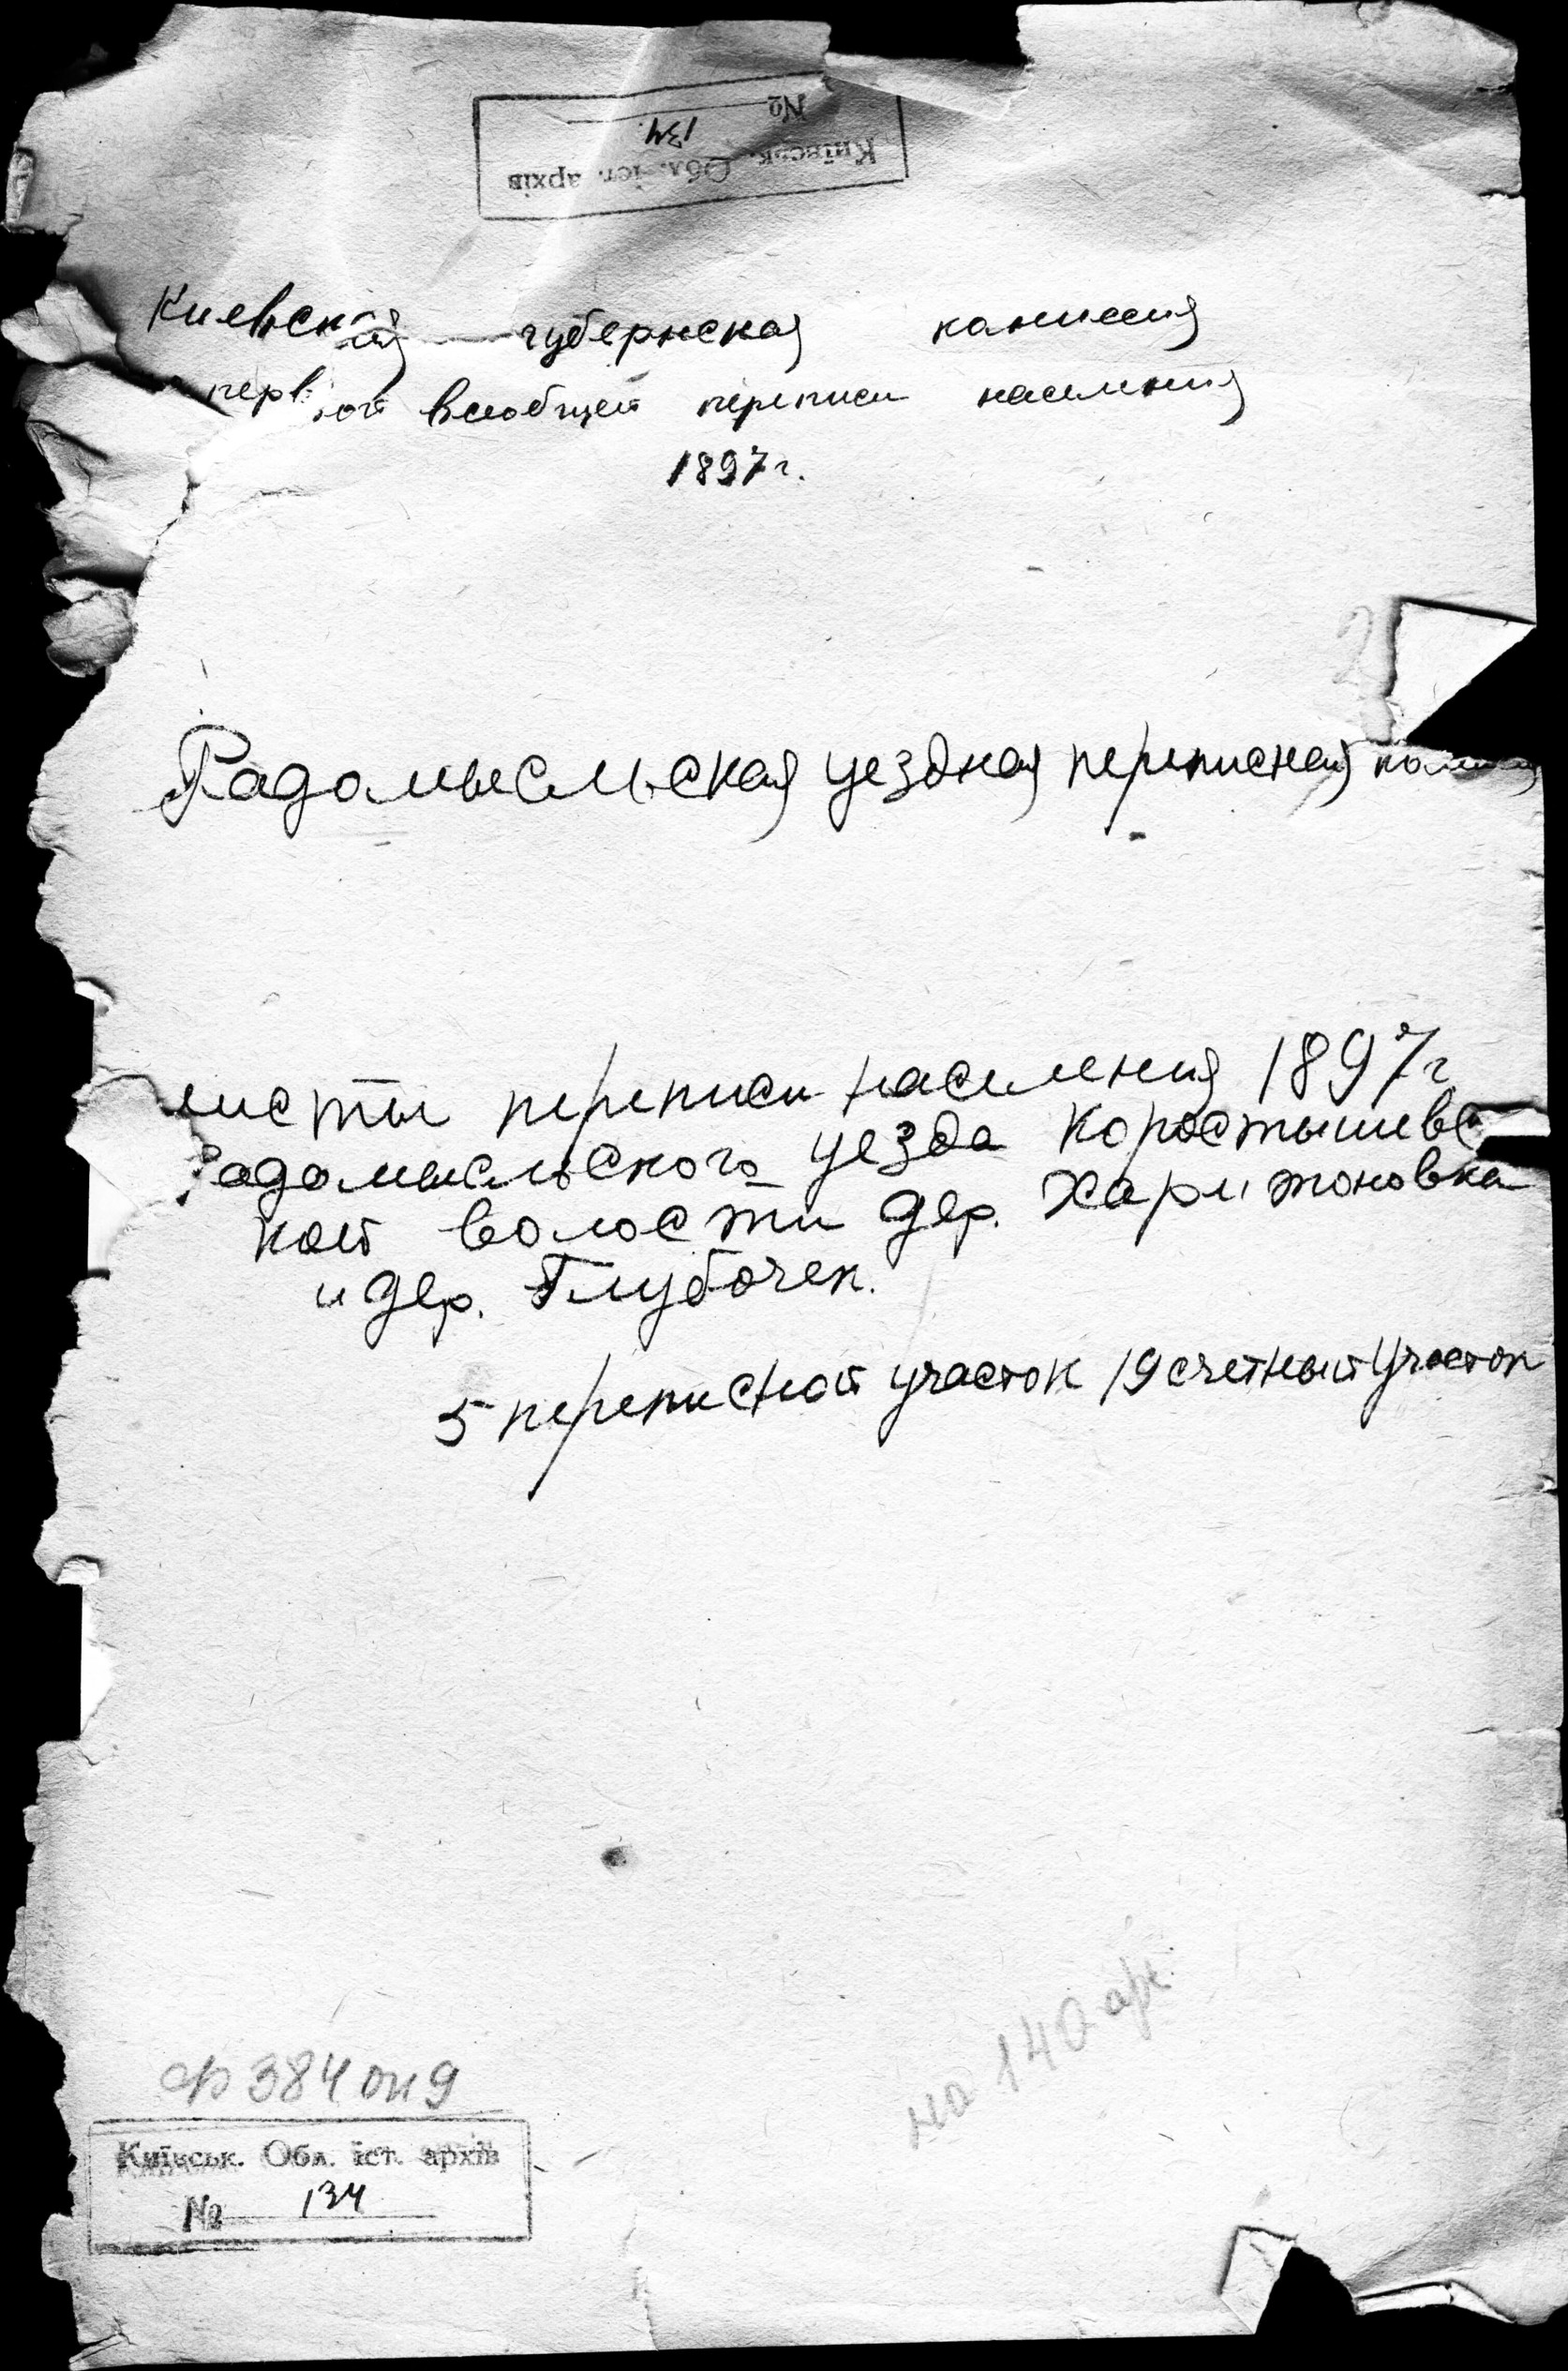 Київськ. Обл. іст. архів
№ 134.
Киевская губернская комиссия
первой всеобщей переписи населения
1897 г.
Радомысльская уездная переписная
листы переписи населения 1897 г
Радомысльского уезда Коростышевс
кой волости дер. Харитоновка
и дер. Глубочек.
5 переписной участок 19 счетный участок
на 140 арк.
ф 384 оп 9
Київськ. Обл. іст. архів
№ 134